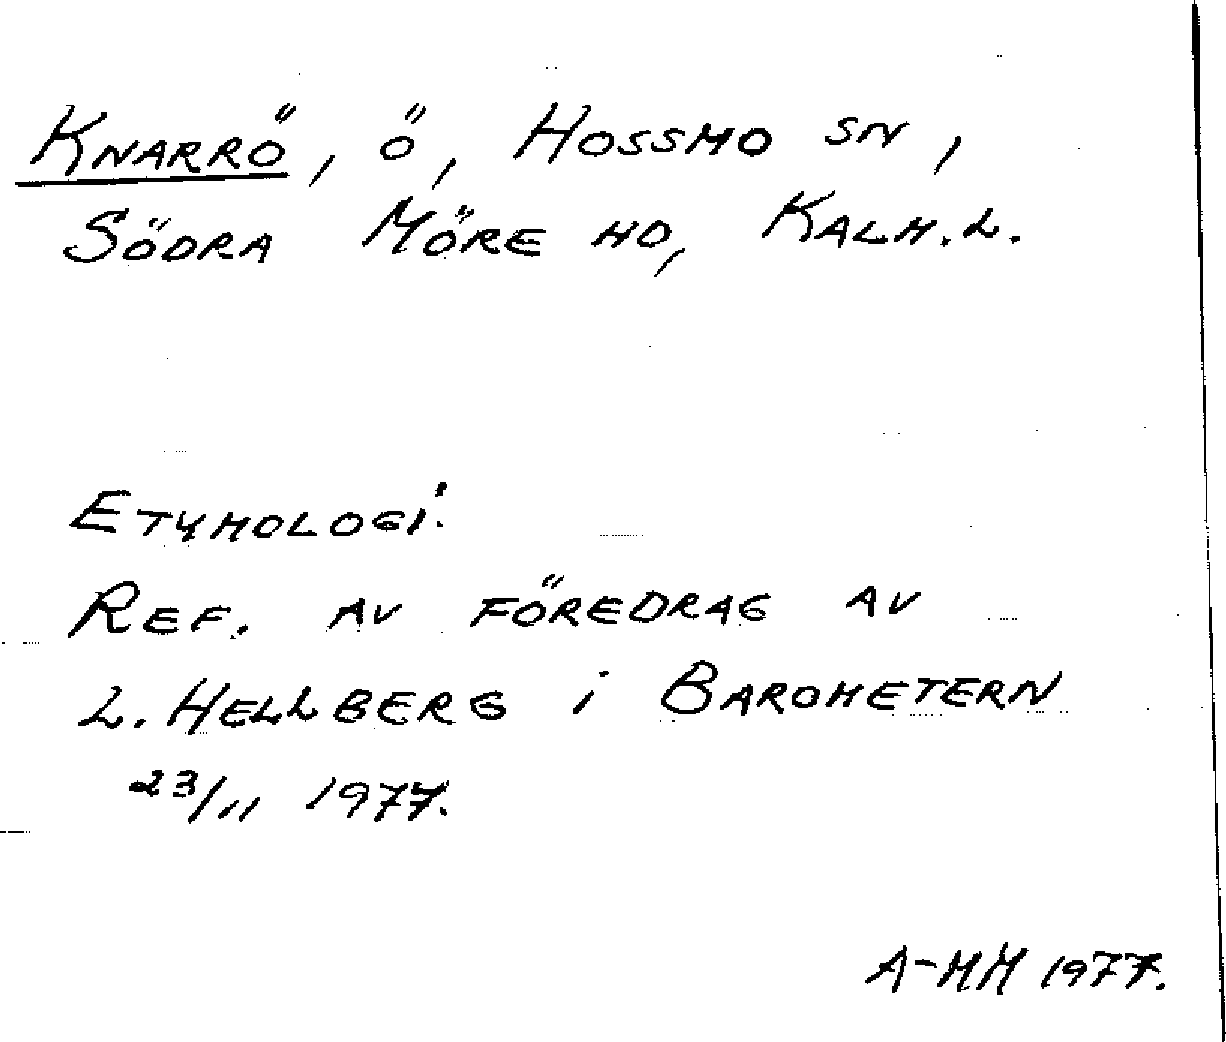 Knarrö, ö, Hossmo sn,
Södra Möre hd, Kalm. l.
Etymologi:
Ref. av föredrag av
L. Hellberg i Barometern
23/11 1977.
A-MH 1977.